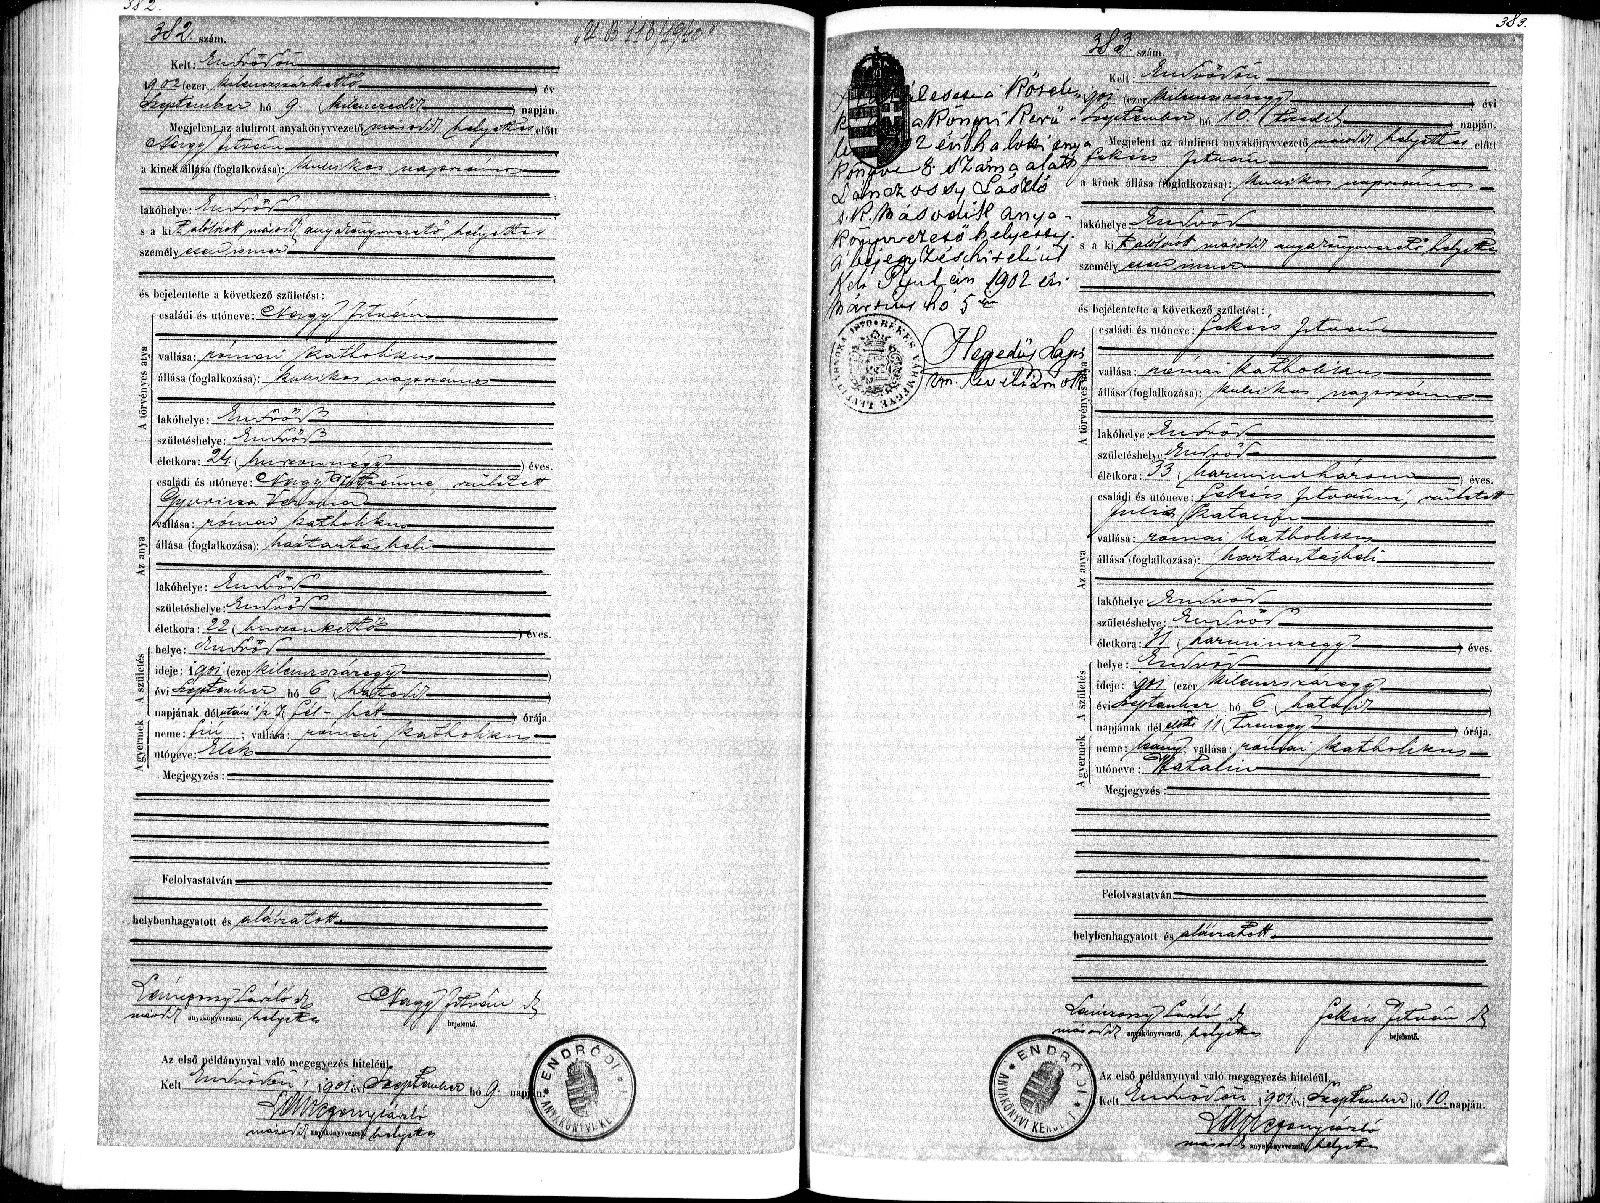 382.
382. szám.
Kelt: Endrődön
901 (ezer kilencszáz ) év
Szeptember hó 9. (kilencedik ) napján.
Megjelent az alulirott anyakönyvvezető második helyettes előtt
Nagy István
a kinek állása (foglalkozása): kubikos napszámos
lakóhelye: Endrőd
s a ki alólirott második anyakönyvvezető helyettes
személyesen ismer
és bejelentette a következő születést:
A törvényes atya
családi és utóneve: Nagy István
vallása: római katholikus
állása (foglalkozása): kubikos napszámos
lakóhelye: Endrőd
születéshelye: Endrőd
életkora: 24 (huszonnégy ) éves.
Az anya
családi és utóneve: Nagy Istvánné, született
Gyuricza Veronka
vallása: római katholikus
állása (foglalkozása): háztartásbeli
lakóhelye: Endrőd
születéshelye: Endrőd
életkora: 22 (huszonkettő ) éves.
A születés
helye: Endrőd
ideje: 1901 (ezer kilencszázegy )
évi Szeptember hó 6 (hatodik )
napjának délutáni ½ 7 (fél-hét ) órája.
A gyermek
neme: fiú; vallása: római katholikus
utóneve: Elek
Megjegyzés:
Felolvastatván
helybenhagyatott és aláiratott.
László s.k. Nagy István s.k.
második anyakönyvvezető. helyettes bejelentő.
Az első példánynyal való megegyezés hiteléül.
Kelt Endrődön, 1901 évi Szeptember hó 9. napján.
László
második anyakönyvvezető helyettes
ENDRŐDI
383.
a Kőröskönyvi
2 évi halotti anya
könyve 8 száma alatt
László
s.k. második anya-
könyvvezető helyettes
a bejegyzés hiteléül
Kelt Gyulán 1902 évi
Március hó 5 én
Hegedűs Lajos
vm. levéltárnok
BÉKÉS VÁRMEGYE LEVÉLTÁRNOKA 1870
383. szám.
Kelt: Endrődön
901 (ezer kilencszázegy ) évi
Szeptember hó 10. (tizedik ) napján.
Megjelent az alulirott anyakönyvvezető második helyettes előtt
István
a kinek állása (foglalkozása): kubikos napszámos
lakóhelye: Endrőd
s a ki alólirott második anyakönyvvezető helyettes
személyesen ismer
és bejelentette a következő születést:
A törvényes atya
családi és utóneve: István
vallása: római katholikus
állása (foglalkozása): kubikos napszámos
lakóhelye: Endrőd
születéshelye: Endrőd
életkora: 33 (harminchárom ) éves.
Az anya
családi és utóneve: Istvánné, született
Katalin
vallása: római katholikus
állása (foglalkozása): háztartásbeli
lakóhelye: Endrőd
születéshelye: Endrőd
életkora: 31 (harminczegy ) éves.
A születés
helye: Endrőd
ideje: 901 (ezer kilencszázegy )
évi Szeptember hó 6 (hatodik )
napjának délelőtti 11 (tizenegy ) órája.
A gyermek
neme: leány; vallása: római katholikus
utóneve: Katalin
Megjegyzés:
Felolvastatván
helybenhagyatott és aláiratott.
László s.k. István s.k.
második anyakönyvvezető. helyettes bejelentő.
Az első példánynyal való megegyezés hiteléül.
Kelt Endrődön 1901 évi Szeptember hó 10. napján.
László
második anyakönyvvezető helyettes
ENDRŐDI ANYAKÖNYVI KERÜLET